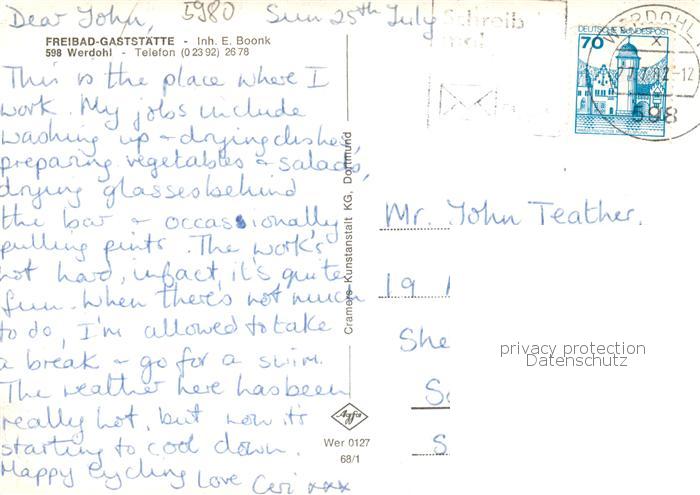 Dear John,
5980
Sun 25th July
Schreib
mal
FREIBAD-GASTSTÄTTE - Inh. E. Boonk
598 Werdohl - Telefon (0 23 92) 26 78
DEUTSCHE BUNDESPOST
70
WERDOHL 1
27.7.82-12
598
This is the place where I
work. My jobs include
washing up & drying dishes,
preparing vegetables & salads,
drying glasses behind
the bar & occassionally
pulling pints. The work's
not hard, infact, it's quite
fun. When there's not much
to do, I'm allowed to take
a break & go for a swim.
The weather here has been
really hot, but now it's
starting to cool down.
Happy Cycling Love Ceri xxx
Cramers Kunstanstalt KG, Dortmund
Mr. John Teather.
19
She
S
privacy protection
Datenschutz
Agfa
Wer 0127
68/1